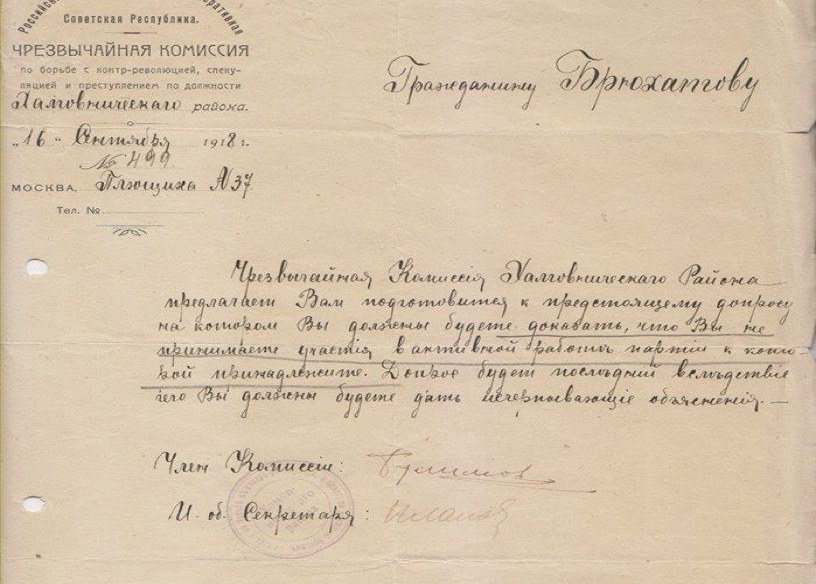 Российск
еративная
Советская Республика.
ЧРЕЗВЫЧАЙНАЯ КОМИССИЯ
по борьбе с контр-революцией, спеку-
ляцией и преступлением по должности
Хамовническаго района.
„16“ Сентября 1918 г.
№ 499
МОСКВА, Плющиха № 37.
Тел. №
Гражданину Брюхатову
Чрезвычайная Комиссія Хамовническаго Района
предлагает Вам подготовится к предстоящему допросу
на котором Вы должны будете доказать, что Вы не
принимаете участія в активной работѣ партіи к кото-
рой принадлежите. Допрос будет послѣдній вслѣдствіе
чего Вы должны будете дать исчерпывающіе объясненія. —
Член Комиссіи:
И. об. Секретаря: